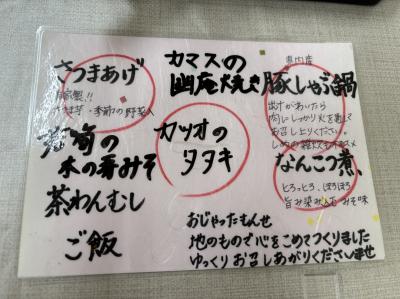 さつまあげ
自家製!!
さつま芋・季節の野菜入
筍の
木の香みそ
茶わんむし
ご飯
カマスの
幽庵焼き
カツオの
タタキ
県内産
豚しゃぶ鍋
出汁がわいたら
肉にしっかり火を通して
お召し上りください。
しめの雑炊もオススメ
なんこつ煮、
とろっとろ、ほろほろ
旨み染み込む みそ味
おじゃったもんせ
地のもので心をこめてつくりました
ゆっくりお召しあがりくださいませ